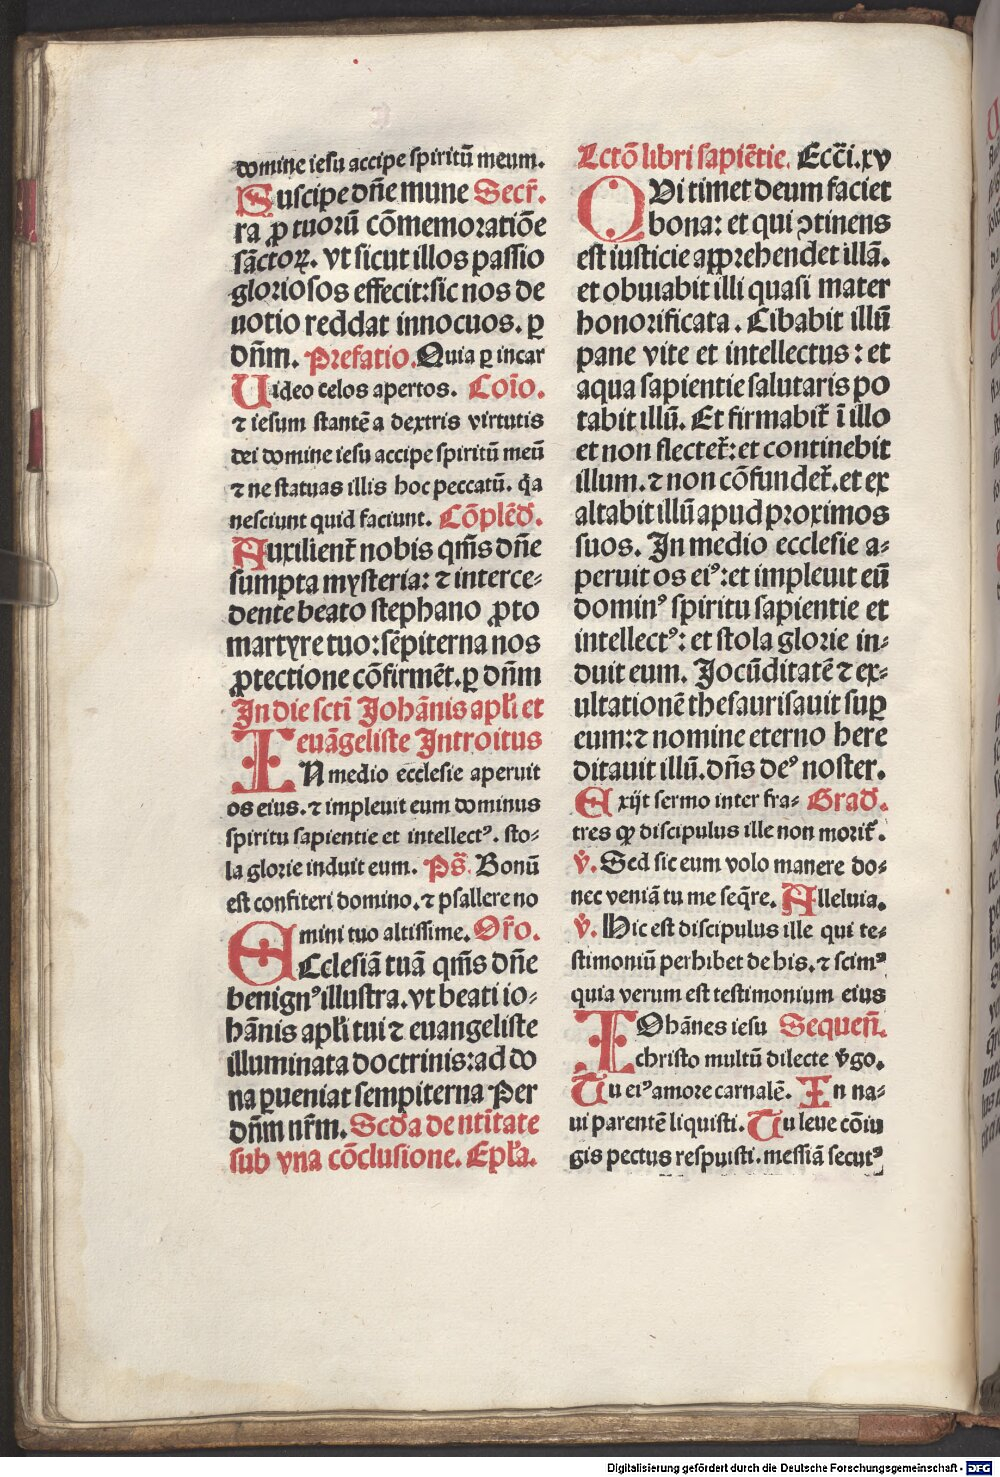 domine iesu accipe spiritū meum.
Suscipe dn̄e mune Secr̄.
ra ꝓ tuorū cōmemoratiōe
sāctoꝝ. vt sicut illos passio
gloriosos effecit: sic nos de
uotio reddat innocuos. ꝑ
dn̄m. Prefatio. Quia ꝑ incar
Uideo celos apertos. Coīo.
⁊ iesum stantē a dextris virtutis
dei domine iesu accipe spiritū meū
⁊ ne statuas illis hoc peccatū. q̄a
nesciunt quid faciunt. Cōplēd̄.
Auxilient᷑ nobis qm̄s dn̄e
sumpta mysteria: ⁊ interce⸗
dente beato stephano ꝓto
martyre tuo: sēpiterna nos
ꝓtectione cōfirmēt. ꝑ dn̄m
In die scti Johānis apl̄i et
euāgeliste Introitus
IN medio ecclesie aperuit
os eius. ⁊ impleuit eum dominus
spiritu sapientie et intellectꝰ. sto⸗
la glorie induit eum. Ps̄. Bonū
est confiteri domino. ⁊ psallere no
mini tuo altissime. Or̄o.
Ecclesiā tuā qm̄s dn̄e
benignꝰ illustra. vt beati io⸗
hānis apl̄i tui ⁊ euangeliste
illuminata doctrinis: ad do
na ꝑueniat sempiterna Per
dn̄m nr̄m. Scd̄a de ntītate
sub vna cōclusione. Epl̄a.
Lctō libri sapiētie. Ecc̄i. xv
QVi timet deum faciet
bona: et qui ↄtinens
est iusticie apprehendet illā.
et obuiabit illi quasi mater
honorificata. Cibabit illū
pane vite et intellectus: et
aqua sapientie salutaris po
tabit illū. Et firmabit᷑ ī illo
et non flectet᷑: et continebit
illum. ⁊ non cōfundet᷑. et ex
altabit illū apud proximos
suos. In medio ecclesie a⸗
peruit os eiꝰ: et impleuit eū
dominꝰ spiritu sapientie et
intellectꝰ: et stola glorie in⸗
duit eum. Jocūditatē ⁊ ex⸗
ultationē thesaurisauit suꝑ
eum: ⁊ nomine eterno here
ditauit illū. dn̄s deꝰ noster.
Exijt sermo inter fra⸗ Grad̄.
tres ꝙ discipulus ille non morit᷑.
v̄. Sed sic eum volo manere do⸗
nec veniā tu me seq̄re. Alleluia.
v̄. Hic est discipulus ille qui te⸗
stimoniū perhibet de his. ⁊ scimꝰ
quia verum est testimonium eius
IOhānes iesu Sequen̄.
christo multū dilecte v̄go.
Tu eiꝰ amore carnalē. In na⸗
ui parentē liquisti. Tu leue cōiu
gis pectus respuisti. messiā secutꝰ
Digitalisierung gefördert durch die Deutsche Forschungsgemeinschaft - DFG